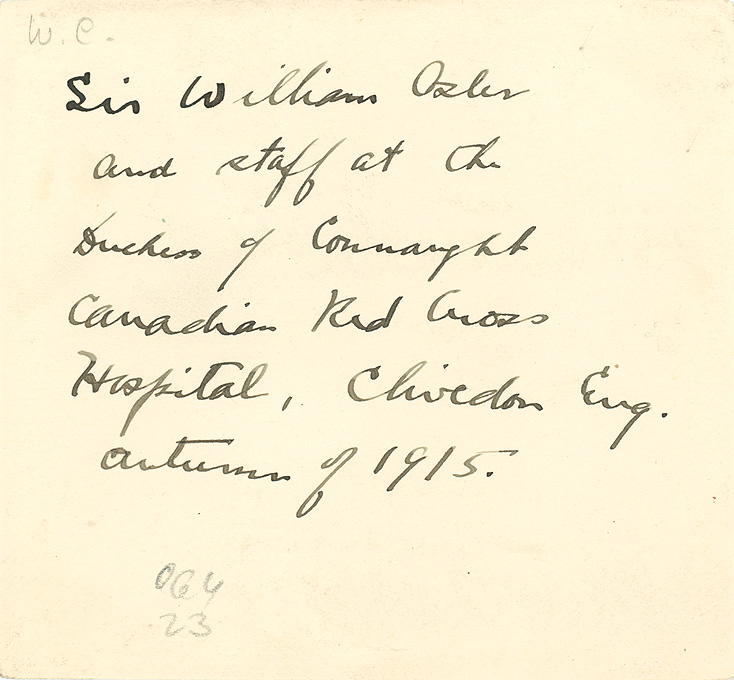 W. C.
Sir William Osler
and staff at the
Duchess of Connaught
Canadian Red Cross
Hospital, Clivedon Eng.
autumn of 1915.
064
23